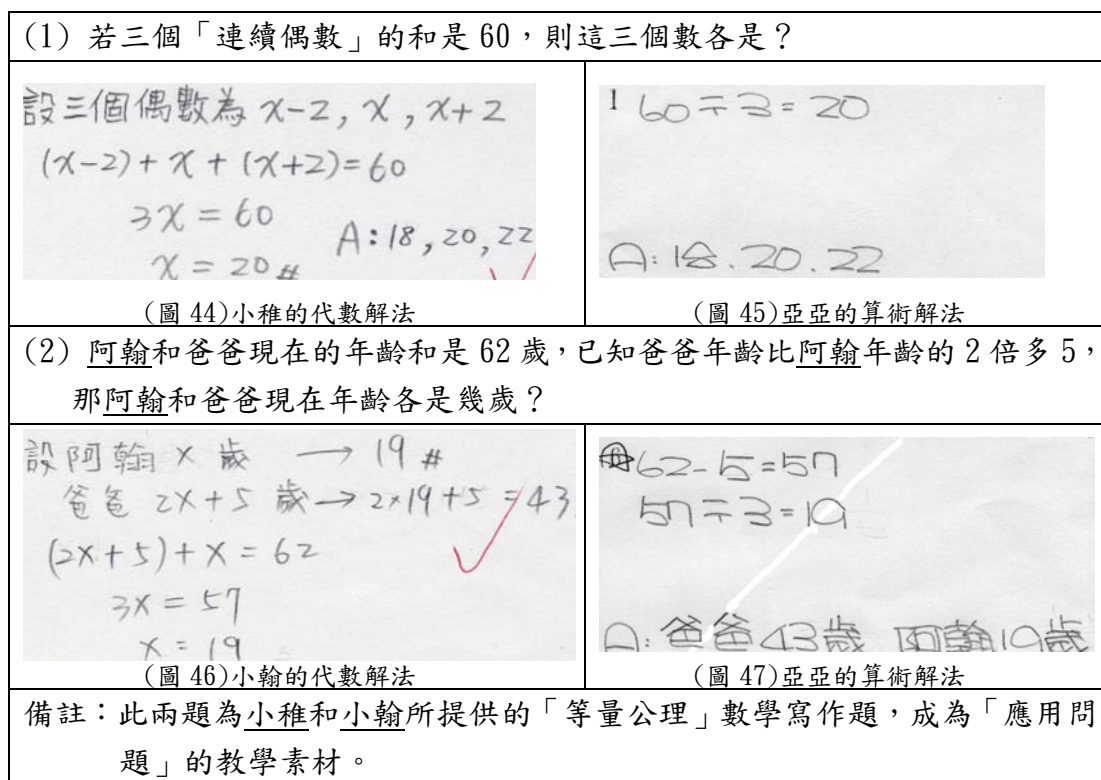 (1) 若三個「連續偶數」的和是 60，則這三個數各是？
設三個偶數為 x-2, x, x+2
(x-2)+x+(x+2)=60
3x=60
x=20#
A:18,20,22
(圖 44)小稚的代數解法
1 60÷3=20
A:18.20.22
(圖 45)亞亞的算術解法
(2) 阿翰和爸爸現在的年齡和是 62 歲，已知爸爸年齡比阿翰年齡的 2 倍多 5，
那阿翰和爸爸現在年齡各是幾歲？
設阿翰 x 歲 → 19 #
爸爸 2x+5 歲→2×19+5=43
(2x+5)+x=62
3x=57
x=19
(圖 46)小翰的代數解法
62-5=57
57÷3=19
A:爸爸43歲 阿翰19歲
(圖 47)亞亞的算術解法
備註：此兩題為小稚和小翰所提供的「等量公理」數學寫作題，成為「應用問
題」的教學素材。